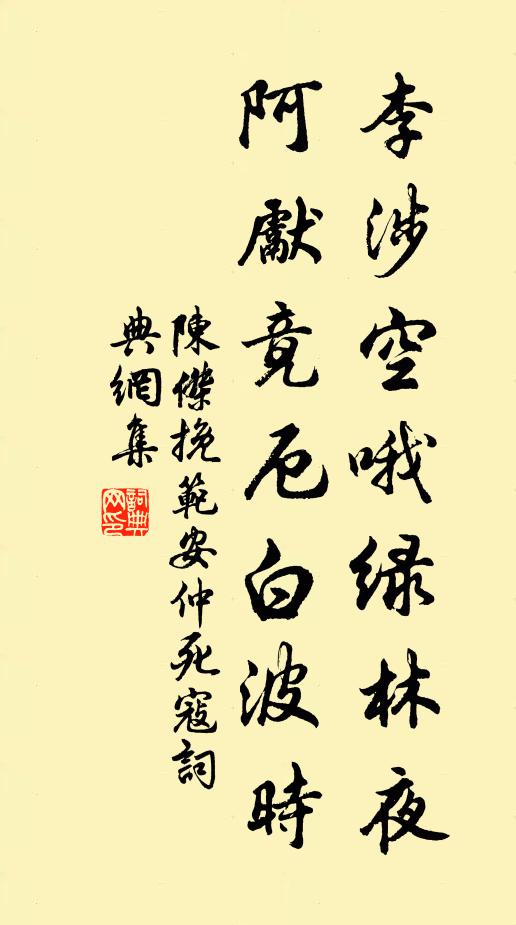 李涉空哦绿林夜
阿獻竟厄白波時
陳傑挽範安仲死寇詞
典網集
詞典網印